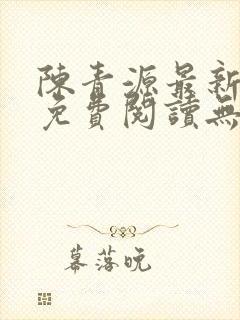 陳青源最新
免費閱讀無
幕落晚